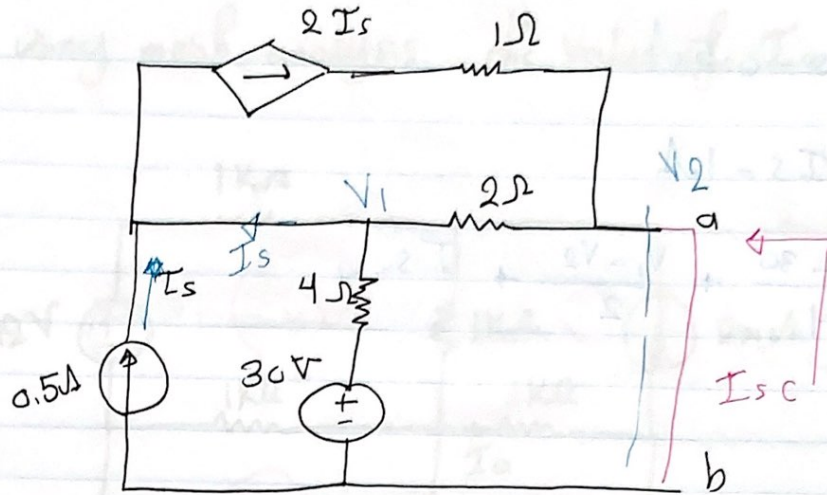 2 Is
1Ω
V1
2Ω
V2
a
Is
Is
4Ω
0.5A
30V
+
-
Isc
b